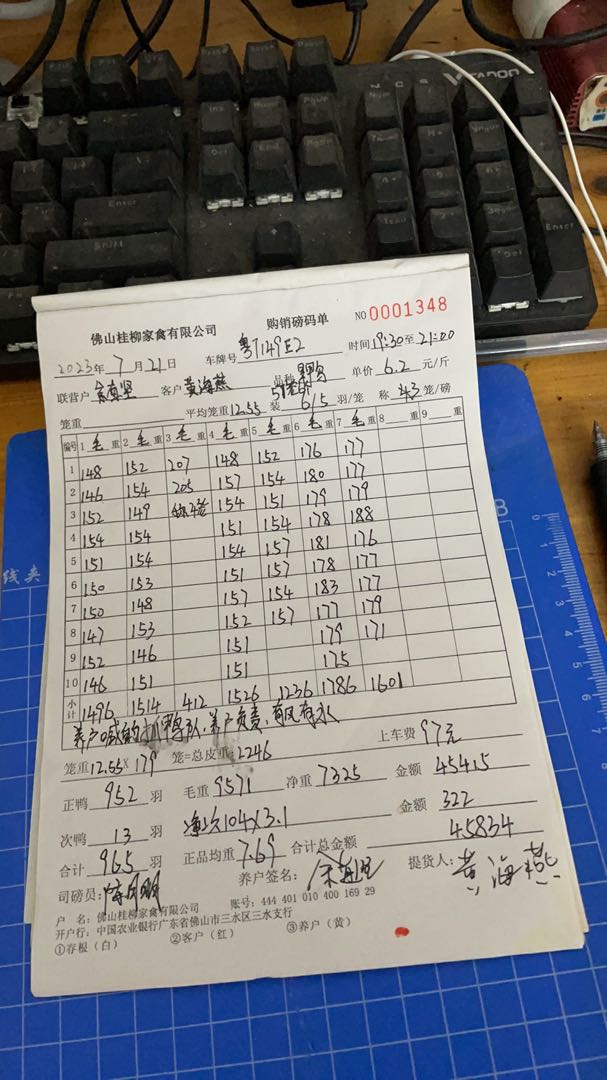 VTADON
佛山桂柳家禽有限公司 购销磅码单 NO 0001348
2023年 7月 21日 车牌号 粤T149E2 时间 19:30至 21:00
联营户 客户 黄海燕 品种 单价 6.2 元/斤
笼重 平均笼重12.55 装 6/5 羽/笼 称 4.3 笼/磅
编号 1 毛 重 2 毛 重 3 毛 重 4 毛 重 5 毛 重 6 毛 重 7 毛 重 8 重 9 重
1 148 152 207 148 152 176 177
2 146 154 205 157 154 180 177
3 152 149 154 151 179 179
4 154 154 151 154 178 188
5 151 154 154 157 181 176
6 150 153 151 157 178 177
7 150 148 157 154 183 177
8 147 153 152 157 177 179
9 152 146 151 179 171
10 146 151 151 175
小计 1496 1514 412 1526 1236 1786 1601
养户负责,有风有水
笼重12.55× 179 笼=总皮重: 2246 上车费 97元
正鸭 952 羽 毛重 9571 净重 7325 金额 45415
次鸭 13 羽 104×3.1 金额 322
合计 965 羽 正品均重 7.69 合计总金额 45834
司磅员: 养户签名: 提货人: 黄海燕
户 名: 佛山桂柳家禽有限公司 账号: 444 401 010 400 169 29
开户行: 中国农业银行广东省佛山市三水区三水支行
①存根(白) ②客户(红) ③养户(黄)